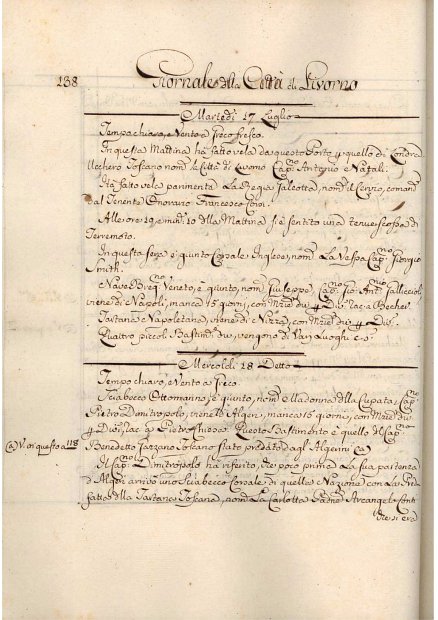 138
Giornale della Città di Livorno
Martedì 17 Luglio
Tempo chiaro, e Vento a Greco fresco.
In questa Mattina ha fatto vela da questo Porto p quello di Londra
Ucchero Toscano nom. la Città di Livorno Cap.no Antonio e Natali.
Ha fatto vela parimenta La Regia Galeotta, nom. il Cervio, comand.
dal Tenente Onorario Francesco
Alle ore 10, e minuti 10 della Mattina si è sentito una tenue scossa di
Terremoto.
In questa sera è giunto Corsale Inglese, nom. La Vespa Cap.no Giorgio
Smith.
Nave Veneto, è giunto, nom. Giuseppe, Cap.no Gio Ant.
viene di Napoli, manca 15 giorni, con Mrie div. p Div. Rac. a Becher.
Tartana Napoletana, viene di Nizza, con Mrie div. p Div.
Quattro piccoli Bastim. div. vengono di Varj Luoghi e
Mercoldì 18 Detto
Tempo chiaro, e Vento a Greco.
Sciabecco Ottomanno è giunto, nom. la Madonna della Cap.no
Pietro Dimitropolo, viene d'Algeri, manca 16 giorni, con Mrie div.
p Div. Rac. a Pietro Questo Bastimento è quello di Cap.no
(a) V. in questo a 118
Benedetto Lazzano Toscano stato predato dagl'Algerini (a)
Il Cap.no Dimitropolo ha riferito, che poco prima La sua partenza
d'Algeri arrivò uno Sciabecco Corsale di quella Nazione con La
della Tartana Toscana, nom. La Carlotta Padne Arcangelo
che si era